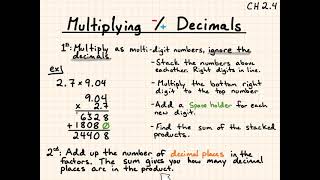 CH 2.4
Multiplying -/+ Decimals
1st: Multiply as multi-digit numbers, ignore the
decimals.
- Stack the numbers above
eachother. Right digits in line.
ex)
2.7 × 9.04
- Multiply the bottom right
digit to the top number
9.04
× 2.7
- Add a Space holder for each
new digit.
6328
+18080
- Find the sum of the stacked
products.
24408
2nd: Add up the number of decimal places in the
factors. The sum gives you how many decimal
places are in the product.